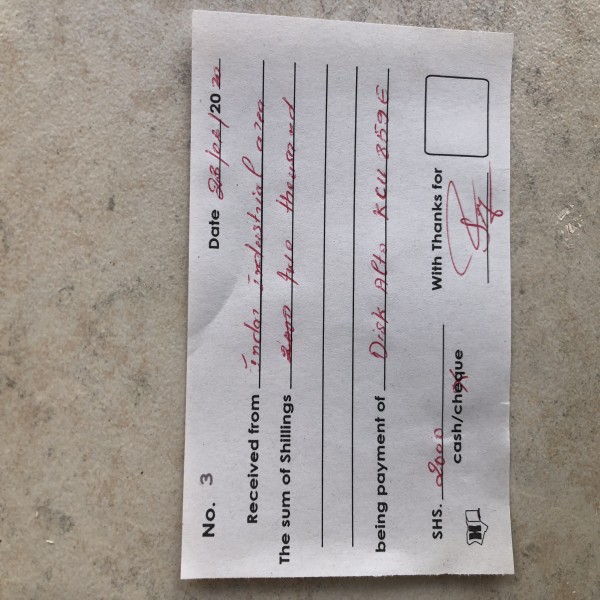 No. 3
Date 28/02/2020
Received from indar industrial area
The sum of Shilllings 2000 two thousand
being payment of Disk Alto KCU 859E
SHS. 2000
With Thanks for
cash/cheque